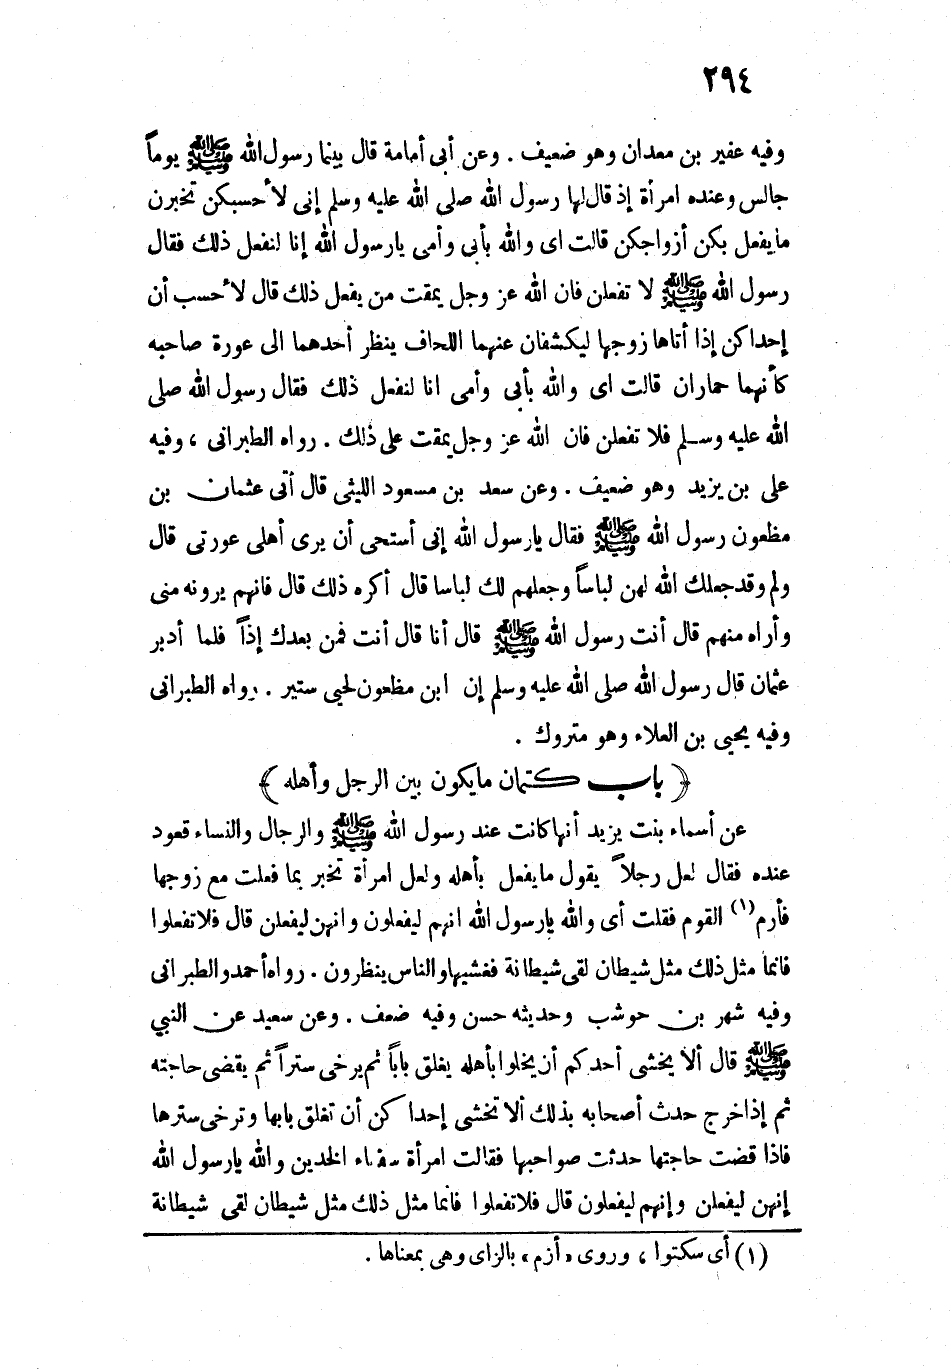 ٢٩٤
وفيه عفير بن معدان وهو ضعيف . وعن أبى أمامة قال بينما رسول الله ﷺ يوماً
جالس وعنده امرأة إذ قال لها رسول الله صلى الله عليه وسلم إنى لأحسبكن تخبرن
ما يفعل بكن أزواجكن قالت اى والله بأبى وأمى يارسول الله إنا لنفعل ذلك فقال
رسول الله ﷺ لا تفعلن فان الله عز وجل يمقت من يفعل ذلك قال لأحسب أن
إحداكن إذا أتاها زوجها ليكشفان عنهما اللحاف ينظر أحدهما الى عورة صاحبه
كأنهما حماران قالت اى والله بأبى وأمى انا لنفعل ذلك فقال رسول الله صلى
الله عليه وسلم فلا تفعلن فان الله عز وجل يمقت على ذلك . رواه الطبرانى ، وفيه
على بن يزيد وهو ضعيف . وعن سعد بن مسعود الليثى قال أتى عثمان بن
مظعون رسول الله ﷺ فقال يارسول الله إنى أستحى أن يرى أهلى عورتى قال
ولم وقد جعلك الله لهن لباساً وجعلهم لك لباسا قال أكره ذلك قال فانهم يرونه منى
وأراه منهم قال أنت رسول الله ﷺ قال أنا قال أنت فمن بعدك إذاً فلما أدبر
عثمان قال رسول الله صلى الله عليه وسلم إن ابن مظعون لحيى ستير . رواه الطبرانى
وفيه يحيى بن العلاء وهو متروك .
﴿ باب كتمان مايكون بين الرجل وأهله ﴾
عن أسماء بنت يزيد أنها كانت عند رسول الله ﷺ والرجال والنساء قعود
عنده فقال لعل رجلاً يقول مايفعل بأهله ولعل امرأة تخبر بما فعلت مع زوجها
فأرم (١) القوم فقلت أى والله يارسول الله انهم ليفعلون وانهن ليفعلن قال فلا تفعلوا
فانما مثل ذلك مثل شيطان لقى شيطانة فغشيها والناس ينظرون . رواه أحمد والطبرانى
وفيه شهر بن حوشب وحديثه حسن وفيه ضعف . وعن سعيد عن النبي
ﷺ قال ألا يخشى أحدكم أن يخلوا بأهله يغلق باباً ثم يرخى ستراً ثم يقضى حاجته
ثم إذا خرج حدث أصحابه بذلك ألا تخشى إحداكن أن تغلق بابها وترخى سترها
فاذا قضت حاجتها حدثت صواحبها فقالت امرأة سفعاء الخدين والله يارسول الله
إنهن ليفعلن وإنهم ليفعلون قال فلا تفعلوا فانما مثل ذلك مثل شيطان لقى شيطانة
(١) أى سكتوا ، وروى «أزم» بالزاى وهى بمعناها .